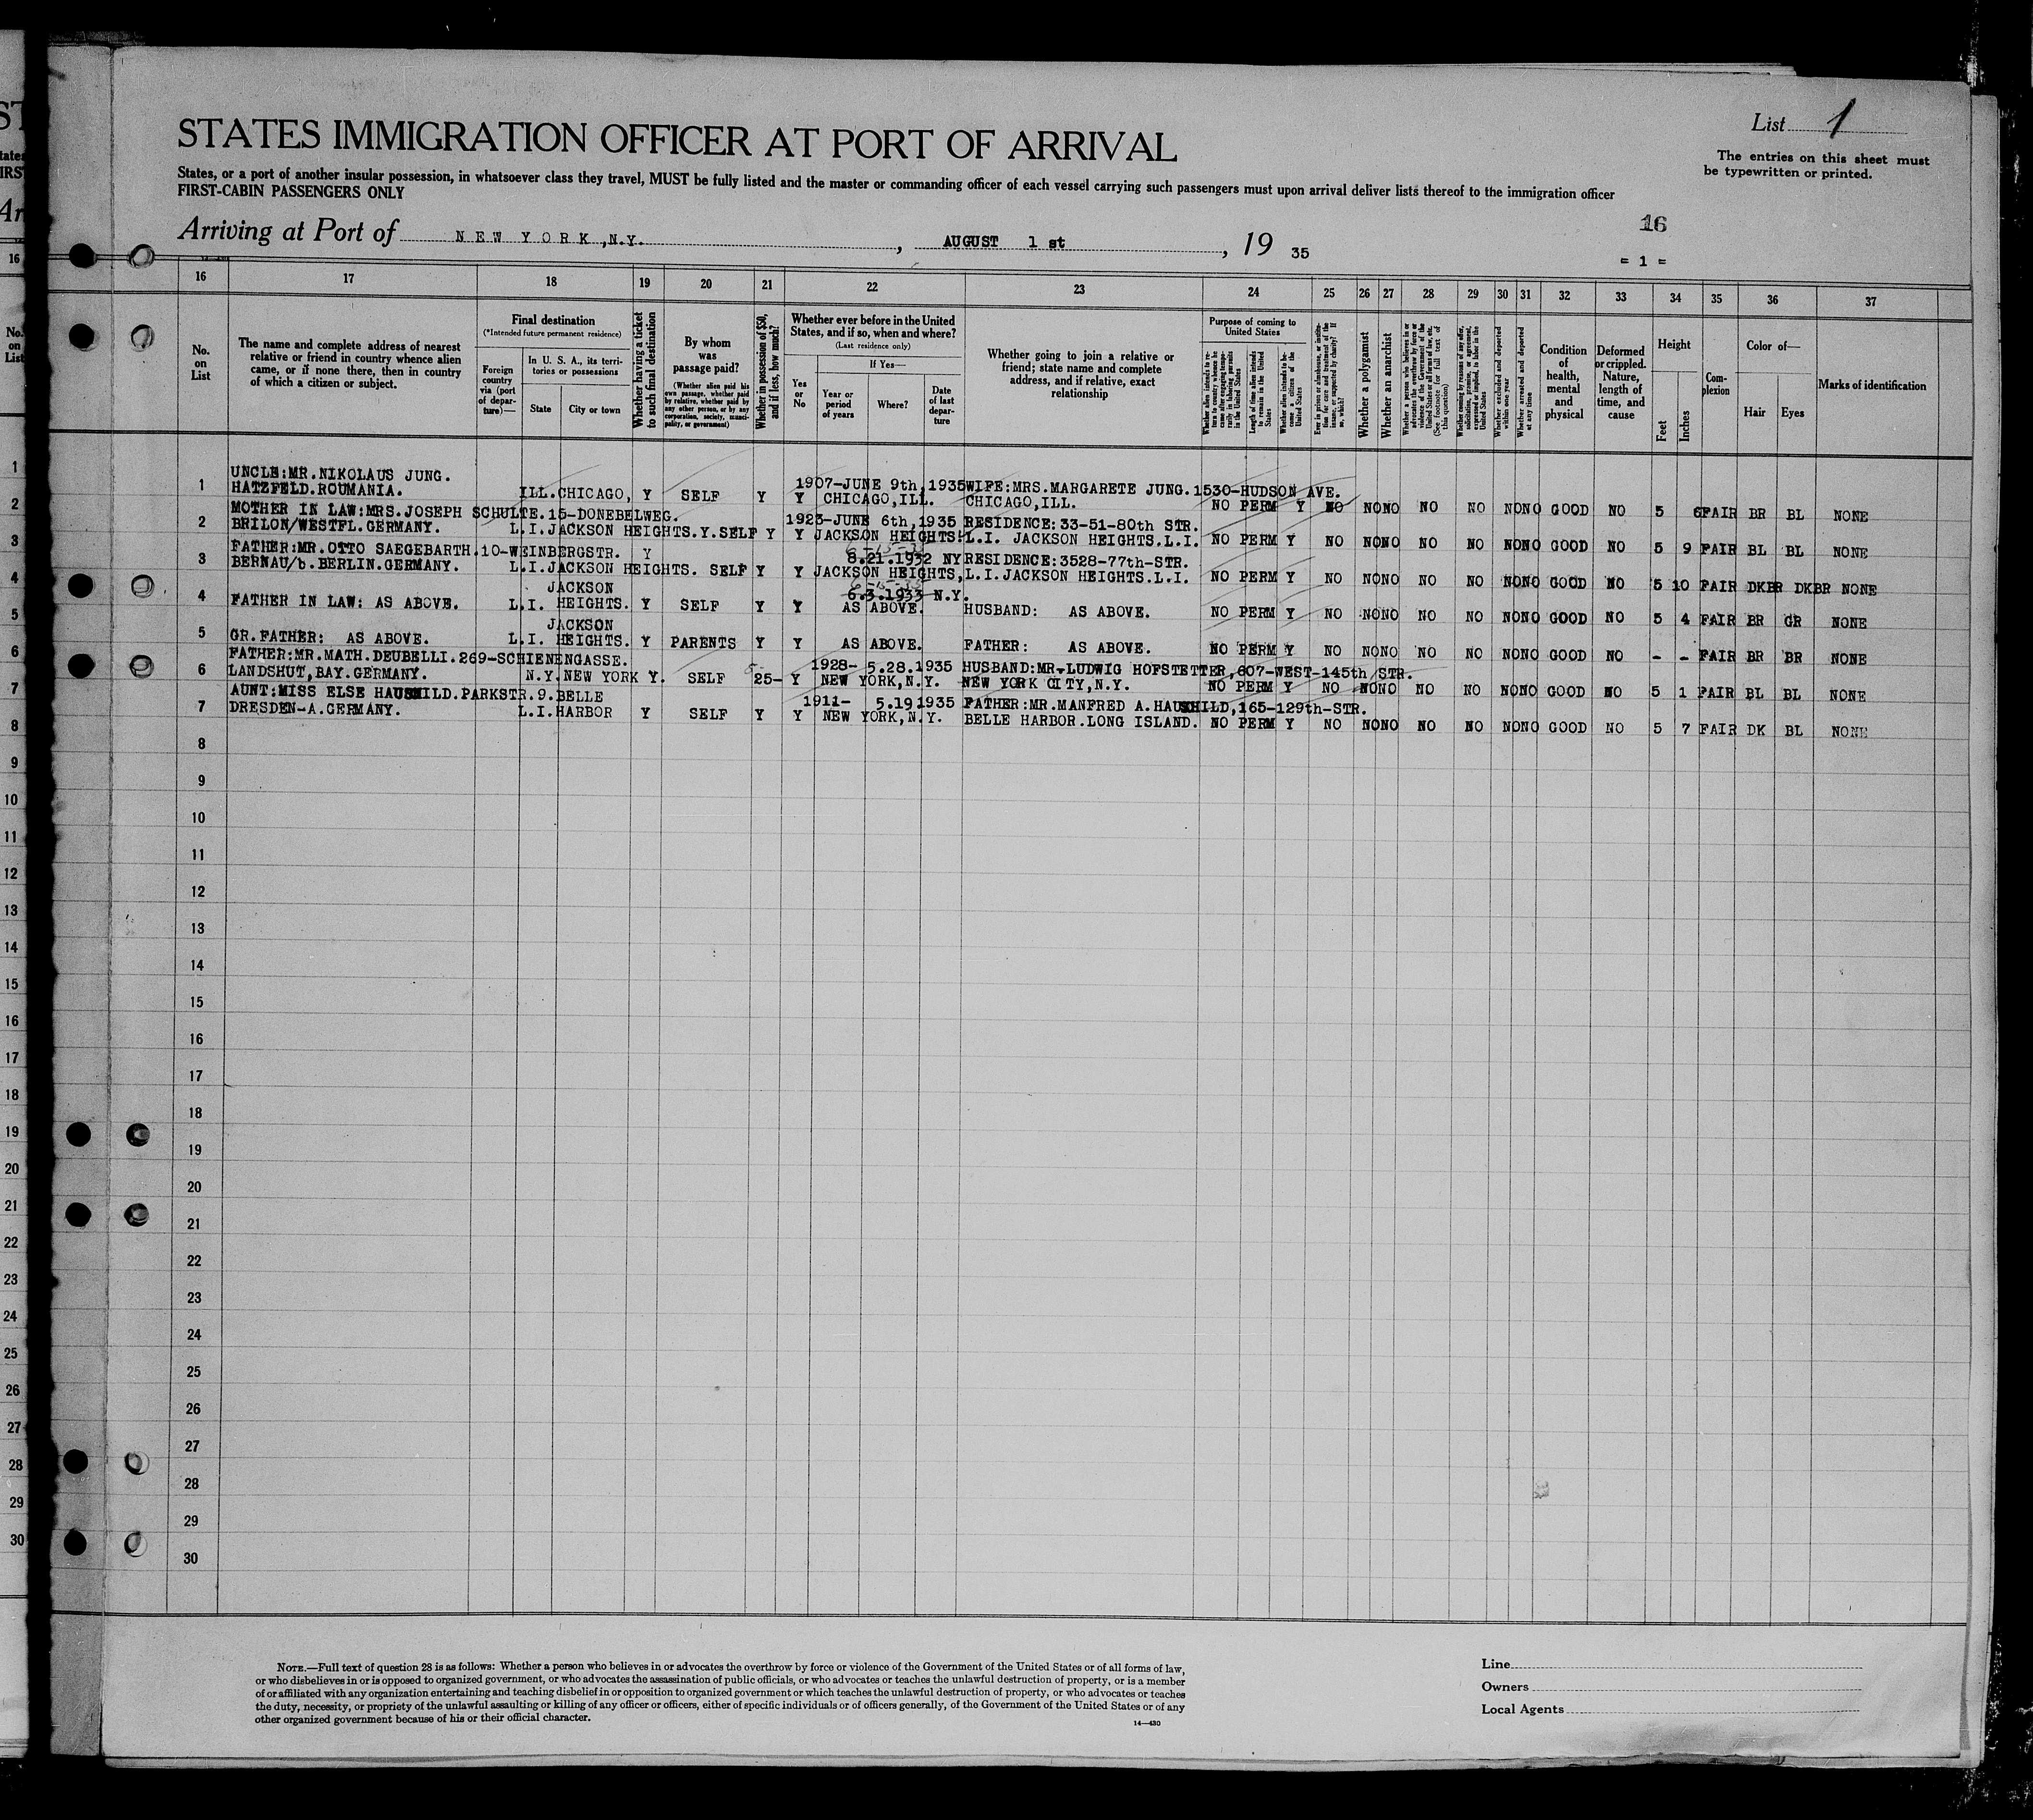 List 1
The entries on this sheet must
be typewritten or printed.
STATES IMMIGRATION OFFICER AT PORT OF ARRIVAL
States, or a port of another insular possession, in whatsoever class they travel, MUST be fully listed and the master or commanding officer of each vessel carrying such passengers must upon arrival deliver lists thereof to the immigration officer
FIRST-CABIN PASSENGERS ONLY
16
Arriving at Port of NEW YORK,N.Y. , AUGUST 1 st , 19 35
= 1 =
16 17 18 19 20 21 22 23 24 25 26 27 28 29 30 31 32 33 34 35 36 37
No. on List
The name and complete address of nearest
relative or friend in country whence alien
came, or if none there, then in country
of which a citizen or subject.
Final destination
(*Intended future permanent residence)
Foreign country via (port of departure)—
In U. S. A., its territories or possessions
State
City or town
Whether having a ticket to such final destination
By whom was passage paid?
(Whether alien paid his own passage, whether paid by relative, whether paid by any other person, or by any corporation, society, municipality, or government)
Whether in possession of $50, and if less, how much?
Whether ever before in the United
States, and if so, when and where?
(Last residence only)
Yes or No
If Yes—
Year or period of years
Where?
Date of last departure
Whether going to join a relative or
friend; state name and complete
address, and if relative, exact
relationship
Purpose of coming to
United States
Whether alien intends to return to country whence he came after engaging temporarily in laboring pursuits in the United States
Length of time alien intends to remain in the United States
Whether alien intends to become a citizen of the United States
Ever in prison or almshouse, or institution for care and treatment of the insane, or supported by charity? If so, which?
Whether a polygamist
Whether an anarchist
Whether a person who believes in or advocates the overthrow by force or violence of the Government of the United States or all forms of law, etc. (See footnote for full text of this question)
Whether coming by reason of any offer, solicitation, promise, or agreement, expressed or implied, to labor in the United States
Whether excluded and deported within one year
Whether arrested and deported at any time
Condition of health, mental and physical
Deformed or crippled. Nature, length of time, and cause
Height
Feet
Inches
Complexion
Color of—
Hair
Eyes
Marks of identification
UNCLE:MR.NIKOLAUS JUNG. 1907-JUNE 9th,1935 WIFE:MRS.MARGARETE JUNG.1530-HUDSON AVE.
1 HATZFELD.ROUMANIA. ILL.CHICAGO, Y SELF Y Y CHICAGO,ILL. CHICAGO,ILL. NO PERM Y NO NO NO NO NO NO NO GOOD NO 5 6 FAIR BR BL NONE
MOTHER IN LAW:MRS.JOSEPH SCHULTE.15-DONEBELWEG. 1923-JUNE 6th,1935 RESIDENCE:33-51-80th STR.
2 BRILON/WESTFL.GERMANY. L.I.JACKSON HEIGHTS.Y.SELF Y Y JACKSON HEIGHTS L.I. JACKSON HEIGHTS.L.I. NO PERM Y NO NO NO NO NO NO NO GOOD NO 5 9 FAIR BL BL NONE
FATHER:MR.OTTO SAEGEBARTH.10-WEINBERGSTR. Y 8.21.1932 NY RESIDENCE:3528-77th-STR.
3 BERNAU/b.BERLIN.GERMANY. L.I.JACKSON HEIGHTS. SELF Y Y JACKSON HEIGHTS, L.I.JACKSON HEIGHTS.L.I. NO PERM Y NO NO NO NO NO NO NO GOOD NO 5 10 FAIR DKBR DKBR NONE
JACKSON 6.3.1933 N.Y.
4 FATHER IN LAW: AS ABOVE. L.I. HEIGHTS. Y SELF Y Y AS ABOVE. HUSBAND: AS ABOVE. NO PERM Y NO NO NO NO NO NO NO GOOD NO 5 4 FAIR BR GR NONE
JACKSON
5 GR.FATHER: AS ABOVE. L.I. HEIGHTS. Y PARENTS Y Y AS ABOVE. FATHER: AS ABOVE. NO PERM Y NO NO NO NO NO NO NO GOOD NO - - FAIR BR BR NONE
FATHER:MR.MATH.DEUBELLI.269-SCHIENENGASSE. 1928- 5.28.1935 HUSBAND:MR.LUDWIG HOFSTETTER,607-WEST-145th STR.
6 LANDSHUT,BAY.GERMANY. N.Y.NEW YORK Y. SELF 25- Y NEW YORK,N.Y. NEW YORK CITY,N.Y. NO PERM Y NO NO NO NO NO NO NO GOOD NO 5 1 FAIR BL BL NONE
AUNT:MISS ELSE HAUSHILD.PARKSTR.9. BELLE 1911- 5.19 1935 FATHER:MR.MANFRED A.HAUSHILD,165-129th-STR.
7 DRESDEN-A.GERMANY. L.I.HARBOR Y SELF Y Y NEW YORK,N.Y. BELLE HARBOR.LONG ISLAND. NO PERM Y NO NO NO NO NO NO NO GOOD NO 5 7 FAIR DK BL NONE
8
9
10
11
12
13
14
15
16
17
18
19
20
21
22
23
24
25
26
27
28
29
30
NOTE.—Full text of question 28 is as follows: Whether a person who believes in or advocates the overthrow by force or violence of the Government of the United States or of all forms of law,
or who disbelieves in or is opposed to organized government, or who advocates the assassination of public officials, or who advocates or teaches the unlawful destruction of property, or is a member
of or affiliated with any organization entertaining and teaching disbelief in or opposition to organized government or which teaches the unlawful destruction of property, or who advocates or teaches
the duty, necessity, or propriety of the unlawful assaulting or killing of any officer or officers, either of specific individuals or of officers generally, of the Government of the United States or of any
other organized government because of his or their official character.
14—430
Line
Owners
Local Agents